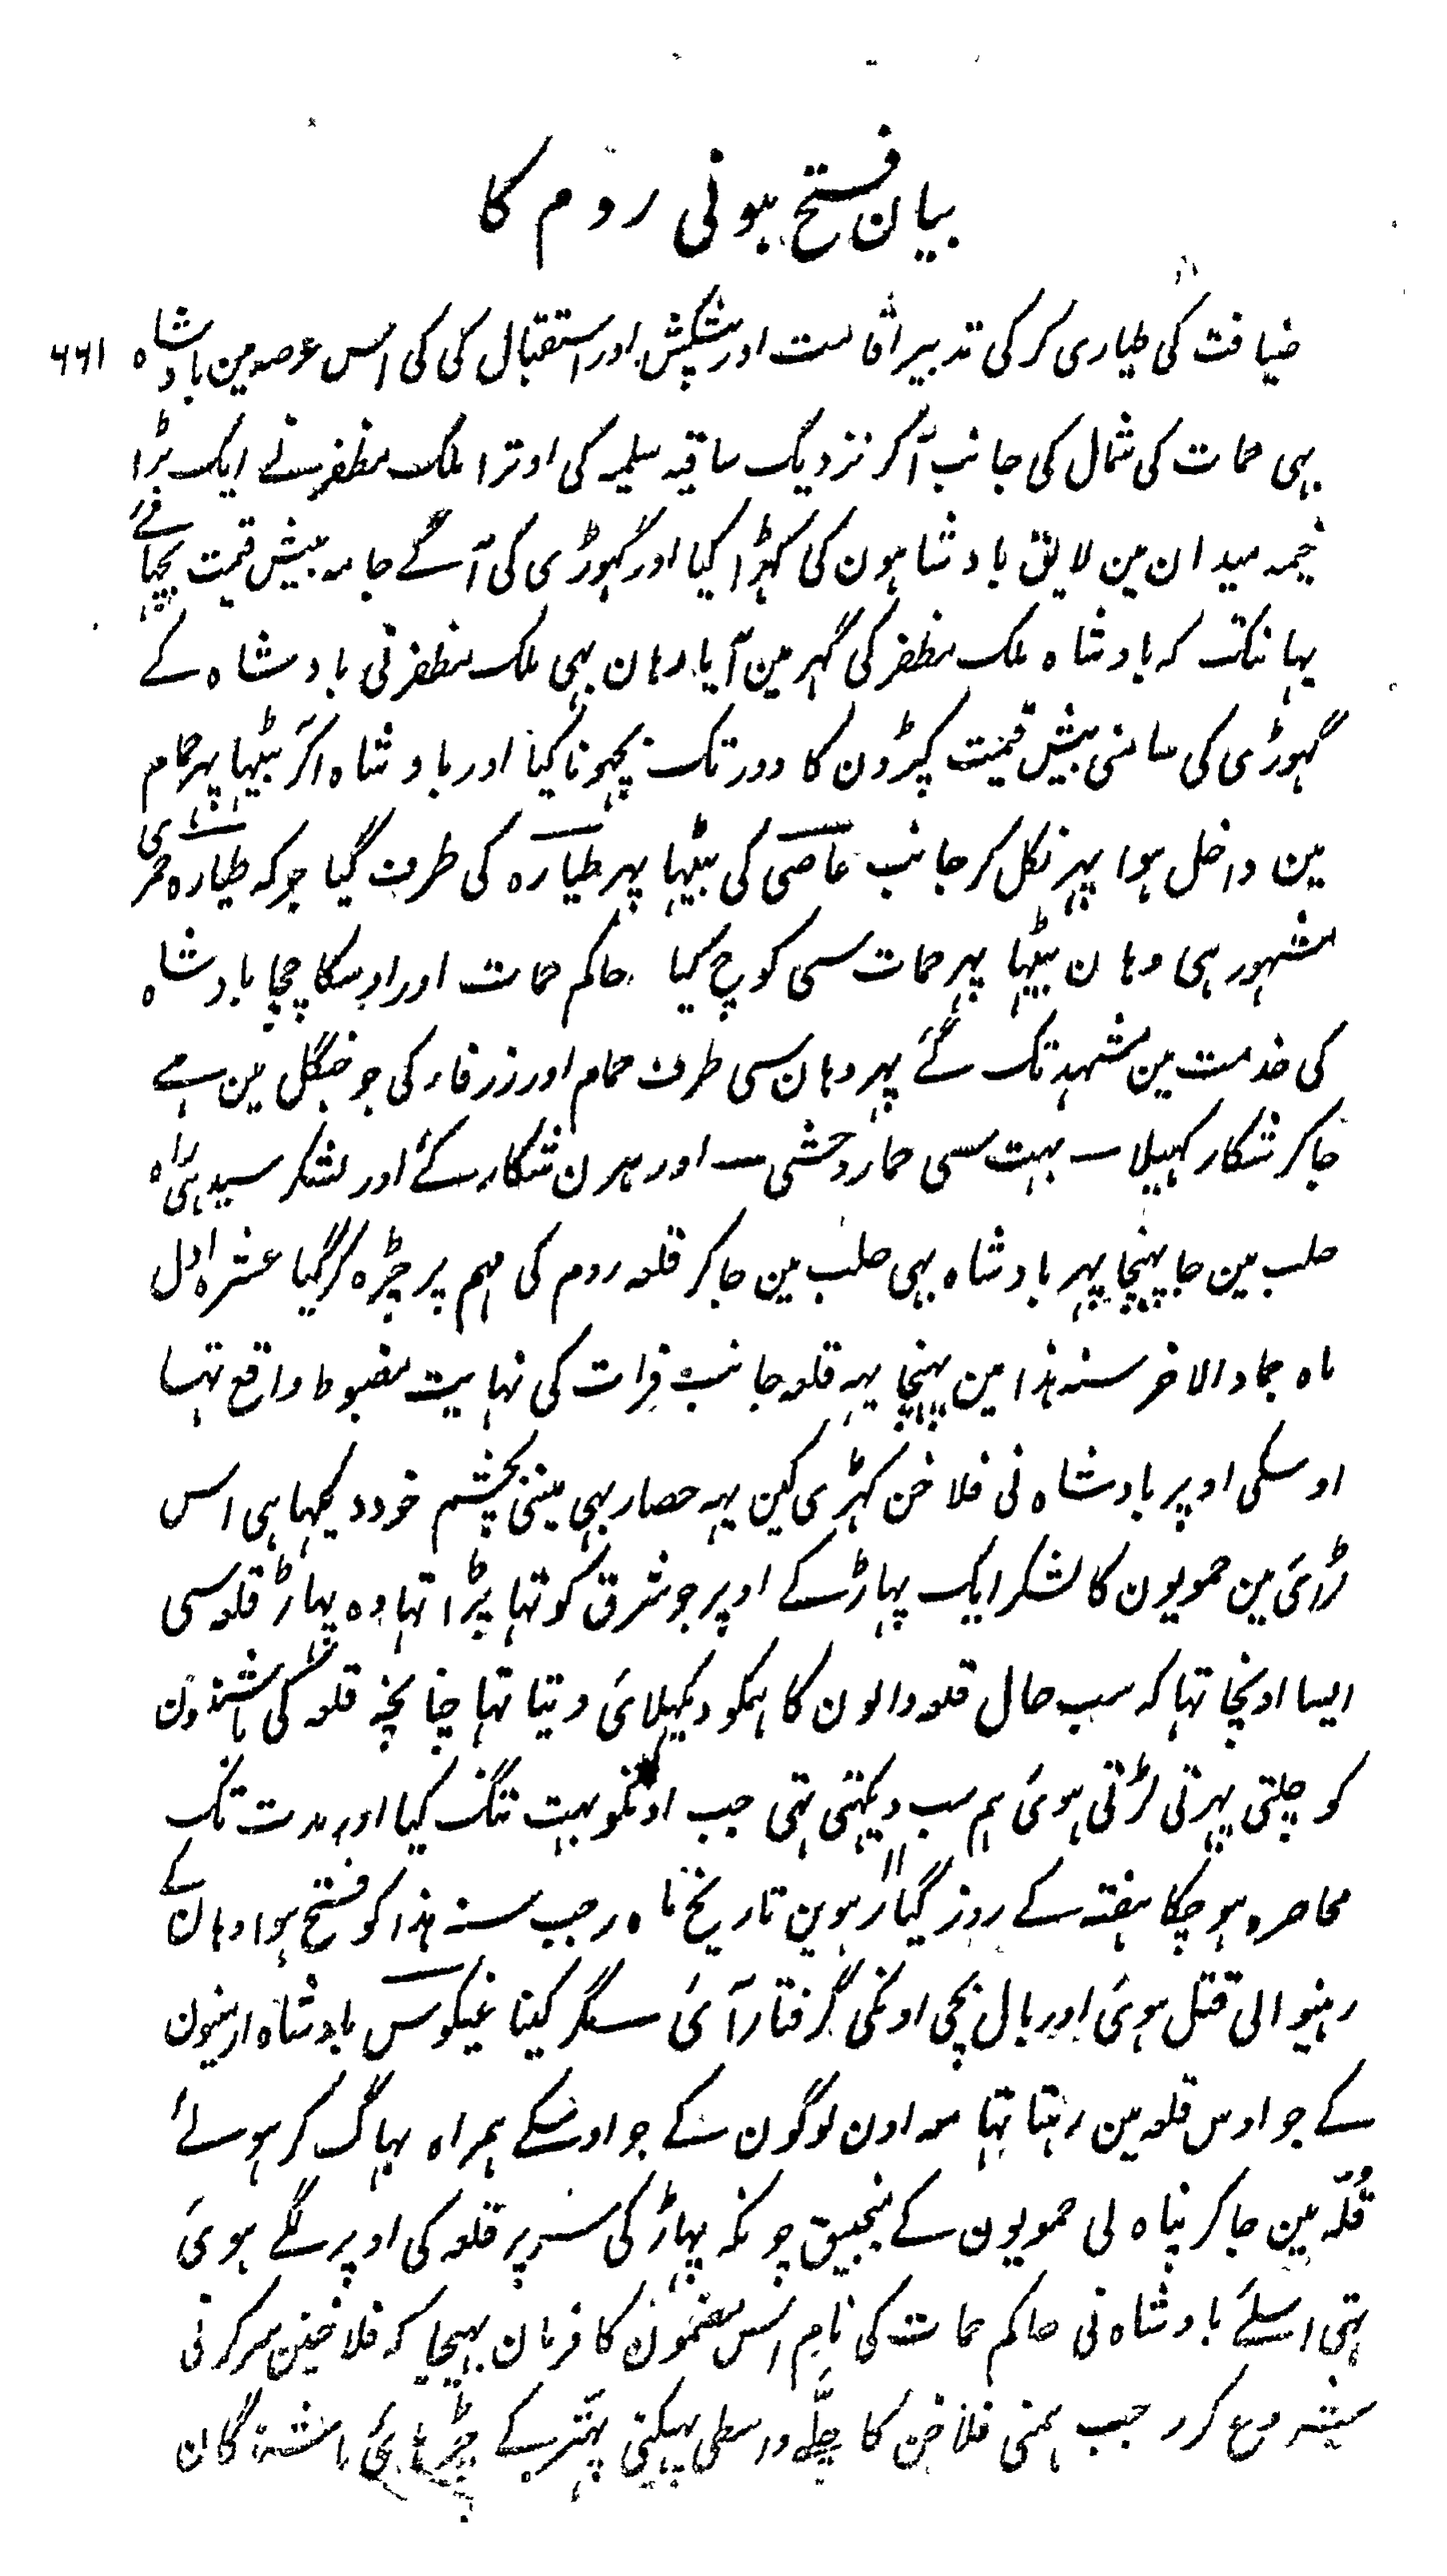 بیان فتح ہونی روم کا
ضیافت کی طیاری کر کی تدبیر اقامت اور پیشکش اور استقبال کی کی اس عرصہ مین بادشاہ ۶۶۱
بہی حمات کی شمال کی جانب آکر نزدیک ساقیہ سلمیہ کی اوترا ملک مظفر نے ایک بڑا
خیمہ میدان مین لایق بادشاہون کی کہڑا کیا اور گہوڑی کی آگے جامہ بیش قیمت بچہائے
یہانتک کہ بادشاہ ملک مظفر کی گہر مین آیا وہان بہی ملک مظفر نی بادشاہ کے
گہوڑی کی سامنی بیش قیمت کپڑون کا دور تک بچہونا کیا اور بادشاہ اکر بیٹہا پہر حمام
مین داخل ہوا پہر نکل کر جانب عاصی کی بیٹہا پہر طیارہ کی طرف گیا جو کہ طیارہ حمری
مشہور ہی وہان بیٹہا پہر حمات سی کوچ کیا حاکم حمات اور اوسکا چچا بادشاہ
کی خدمت مین مشہد تک گے پہر وہان سی طرف حمام اور زرقاء کی جو جنگل مین ہے
جاکر شکار کہیلا ۔ بہت سی حمار وحشی ۔ اور ہرن شکار کے اور لشکر سیدہی راہ
حلب مین جا پہنچا پہر بادشاہ بہی حلب مین جاکر قلعہ روم کی مہم پر چڑہ کر گیا عشرہ اول
ماہ جماد الاخر سنہ ہذا مین پہنچا یہہ قلعہ جانب فرات کی نہایت مضبوط واقع تہا
اوسکی اوپر بادشاہ نی فلاخن کہڑی کین یہہ حصار بہی مینی بچشم خود دیکہا ہی اس
لڑائ مین حمویون کا لشکر ایک پہاڑ کے اوپر جو شرق کو تہا پڑا تہا وہ پہاڑ قلعہ سی
ایسا اونچا تہا کہ سب حال قلعہ والون کا ہمکو دیکہلائ دیتا تہا چنانچہ قلعہ کی باشندون
کو چلتی پہرتی لڑتی ہوئ ہم سب دیکہتی تہی جب اونکو بہت تنگ کیا اور مدت تک
محاصرہ ہوچکا ہفتہ کے روز گیارہوین ۱۱ تاریخ ماہ رجب سنہ ہذا کو فتح ہوا وہان کے
رہنیوالی قتل ہوئ اور بال بچی اونکی گرفتار آئ مگر کیتا غیکوس بادشاہ ارمنیون
کے جو اوس قلعہ مین رہتا تہا معہ اون لوگون کے جو اوسکے ہمراہ بہاگ کر ہولے
قُلّہ مین جاکر پناہ لی حمویون کے منجنیق چونکہ پہاڑ کی سر پر قلعہ کی اوپر لگے ہوئ
تہی اسلے بادشاہ نی حاکم حمات کی نام اس مضمون کا فرمان بہیجا کہ فلاخنین سر کرنی
شروع کرو جب ہمنی فلاخن کا چلّے واسطی پہیکنی پتہر کے چڑہائ باشندگان